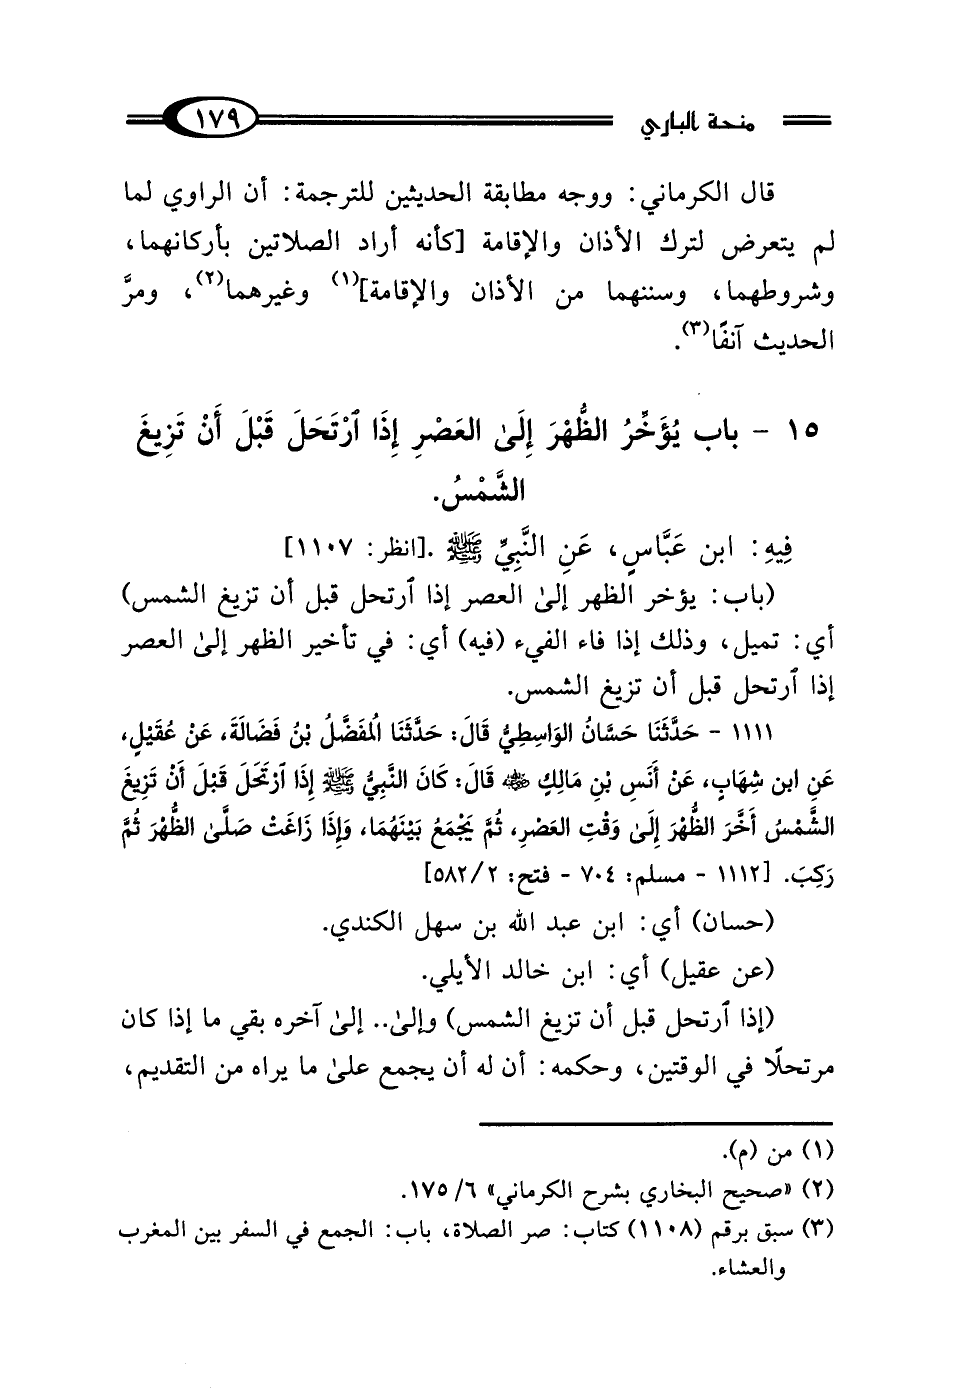 منحة الباري ١٧٩
قال الكرماني: ووجه مطابقة الحديثين للترجمة: أن الراوي لما
لم يتعرض لترك الأذان والإقامة [كأنه أراد الصلاتين بأركانهما،
وشروطهما، وسننهما من الأذان والإقامة](١) وغيرهما(٢)، ومرَّ
الحديث آنفًا(٣).
١٥ - باب يُؤَخِّرُ الظُّهْرَ إِلَىٰ العَصْرِ إِذَا ٱرْتَحَلَ قَبْلَ أَنْ تَزِيغَ
الشَّمْسُ.
فِيهِ: ابن عَبَّاسٍ، عَنِ النَّبِيِّ ﷺ .[انظر: ١١٠٧]
(باب: يؤخر الظهر إلىٰ العصر إذا ٱرتحل قبل أن تزيغ الشمس)
أي: تميل، وذلك إذا فاء الفيء (فيه) أي: في تأخير الظهر إلىٰ العصر
إذا ٱرتحل قبل أن تزيغ الشمس.
١١١١ - حَدَّثَنَا حَسَّانُ الوَاسِطِيُّ قَالَ: حَدَّثَنَا الُمفَضَّلُ بْنُ فَضَالَةَ، عَنْ عُقَيْلٍ،
عَنِ ابن شِهَابٍ، عَنْ أَنَسِ بْنِ مَالِكٍ ﵁ قَالَ: كَانَ النَّبِيُّ ﷺ إِذَا ٱرْتَحَلَ قَبْلَ أَنْ تَزِيغَ
الشَّمْسُ أَخَّرَ الظُّهْرَ إِلَىٰ وَقْتِ العَصْرِ، ثُمَّ يَجْمَعُ بَيْنَهُمَا، وَإِذَا زَاغَتْ صَلَّىٰ الظُّهْرَ ثُمَّ
رَكِبَ. [١١١٢ - مسلم: ٧٠٤ - فتح: ٥٨٢/٢]
(حسان) أي: ابن عبد الله بن سهل الكندي.
(عن عقيل) أي: ابن خالد الأيلي.
(إذا ٱرتحل قبل أن تزيغ الشمس) وإلىٰ.. إلىٰ آخره بقي ما إذا كان
مرتحلًا في الوقتين، وحكمه: أن له أن يجمع علىٰ ما يراه من التقديم،
(١) من (م).
(٢) «صحيح البخاري بشرح الكرماني» ١٧٥/٦.
(٣) سبق برقم (١١٠٨) كتاب: صر الصلاة، باب: الجمع في السفر بين المغرب
والعشاء.